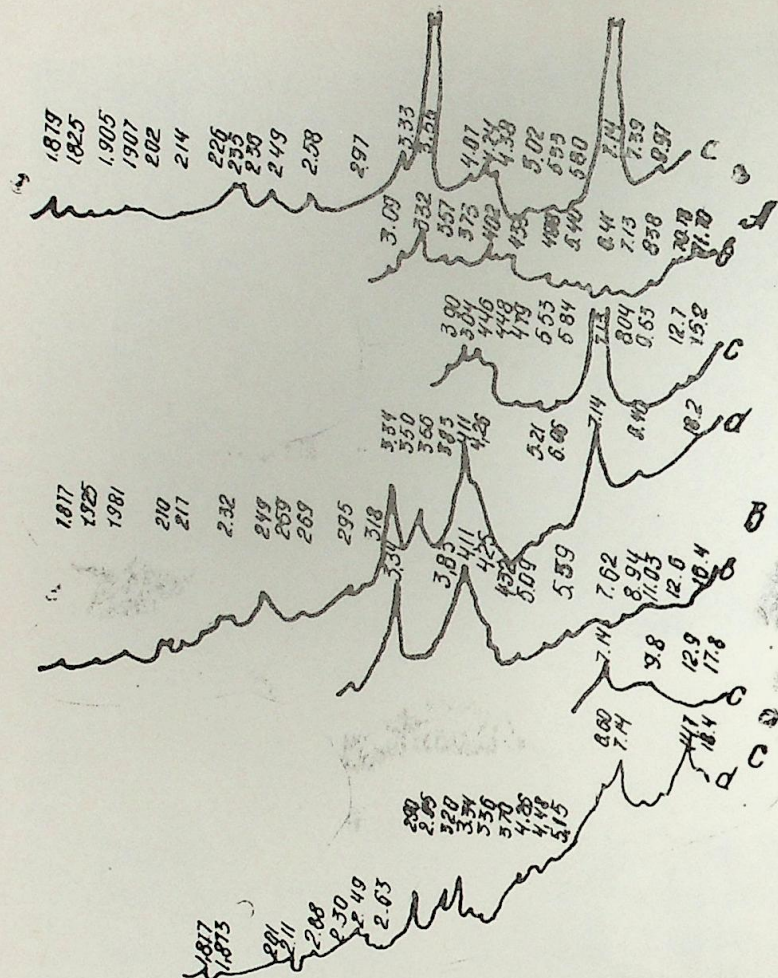 1.879
1.825
1.905
1907
202
214
226
235
2.38
249
2.58
297
3.33
3.56
4.07
4.24
4.38
5.02
533
580
7.14
7.39
8.97
C
A
3.09
332
357
375
402
453
5.40
6.41
7.13
838
10.70
11.70
B
3.90
3.04
446
448
479
5.53
5.84
7.13
8.04
9.63
12.7
15.2
C
3.34
350
366
3.83
4.11
4.26
5.21
6.46
7.14
8.40
18.2
d
1.817
1.925
1.981
210
217
2.32
249
269
269
295
318
B
3.34
3.83
4.11
4.25
4.52
5.09
5.59
7.62
8.94
11.03
12.6
16.4
B
7.14
9.8
12.9
17.8
C
6.60
7.14
14.7
18.4
d
C
290
2.85
3.20
3.34
336
370
4.26
4.48
5.15
1.817
1.873
201
2.11
2.88
2.30
2.49
2.63